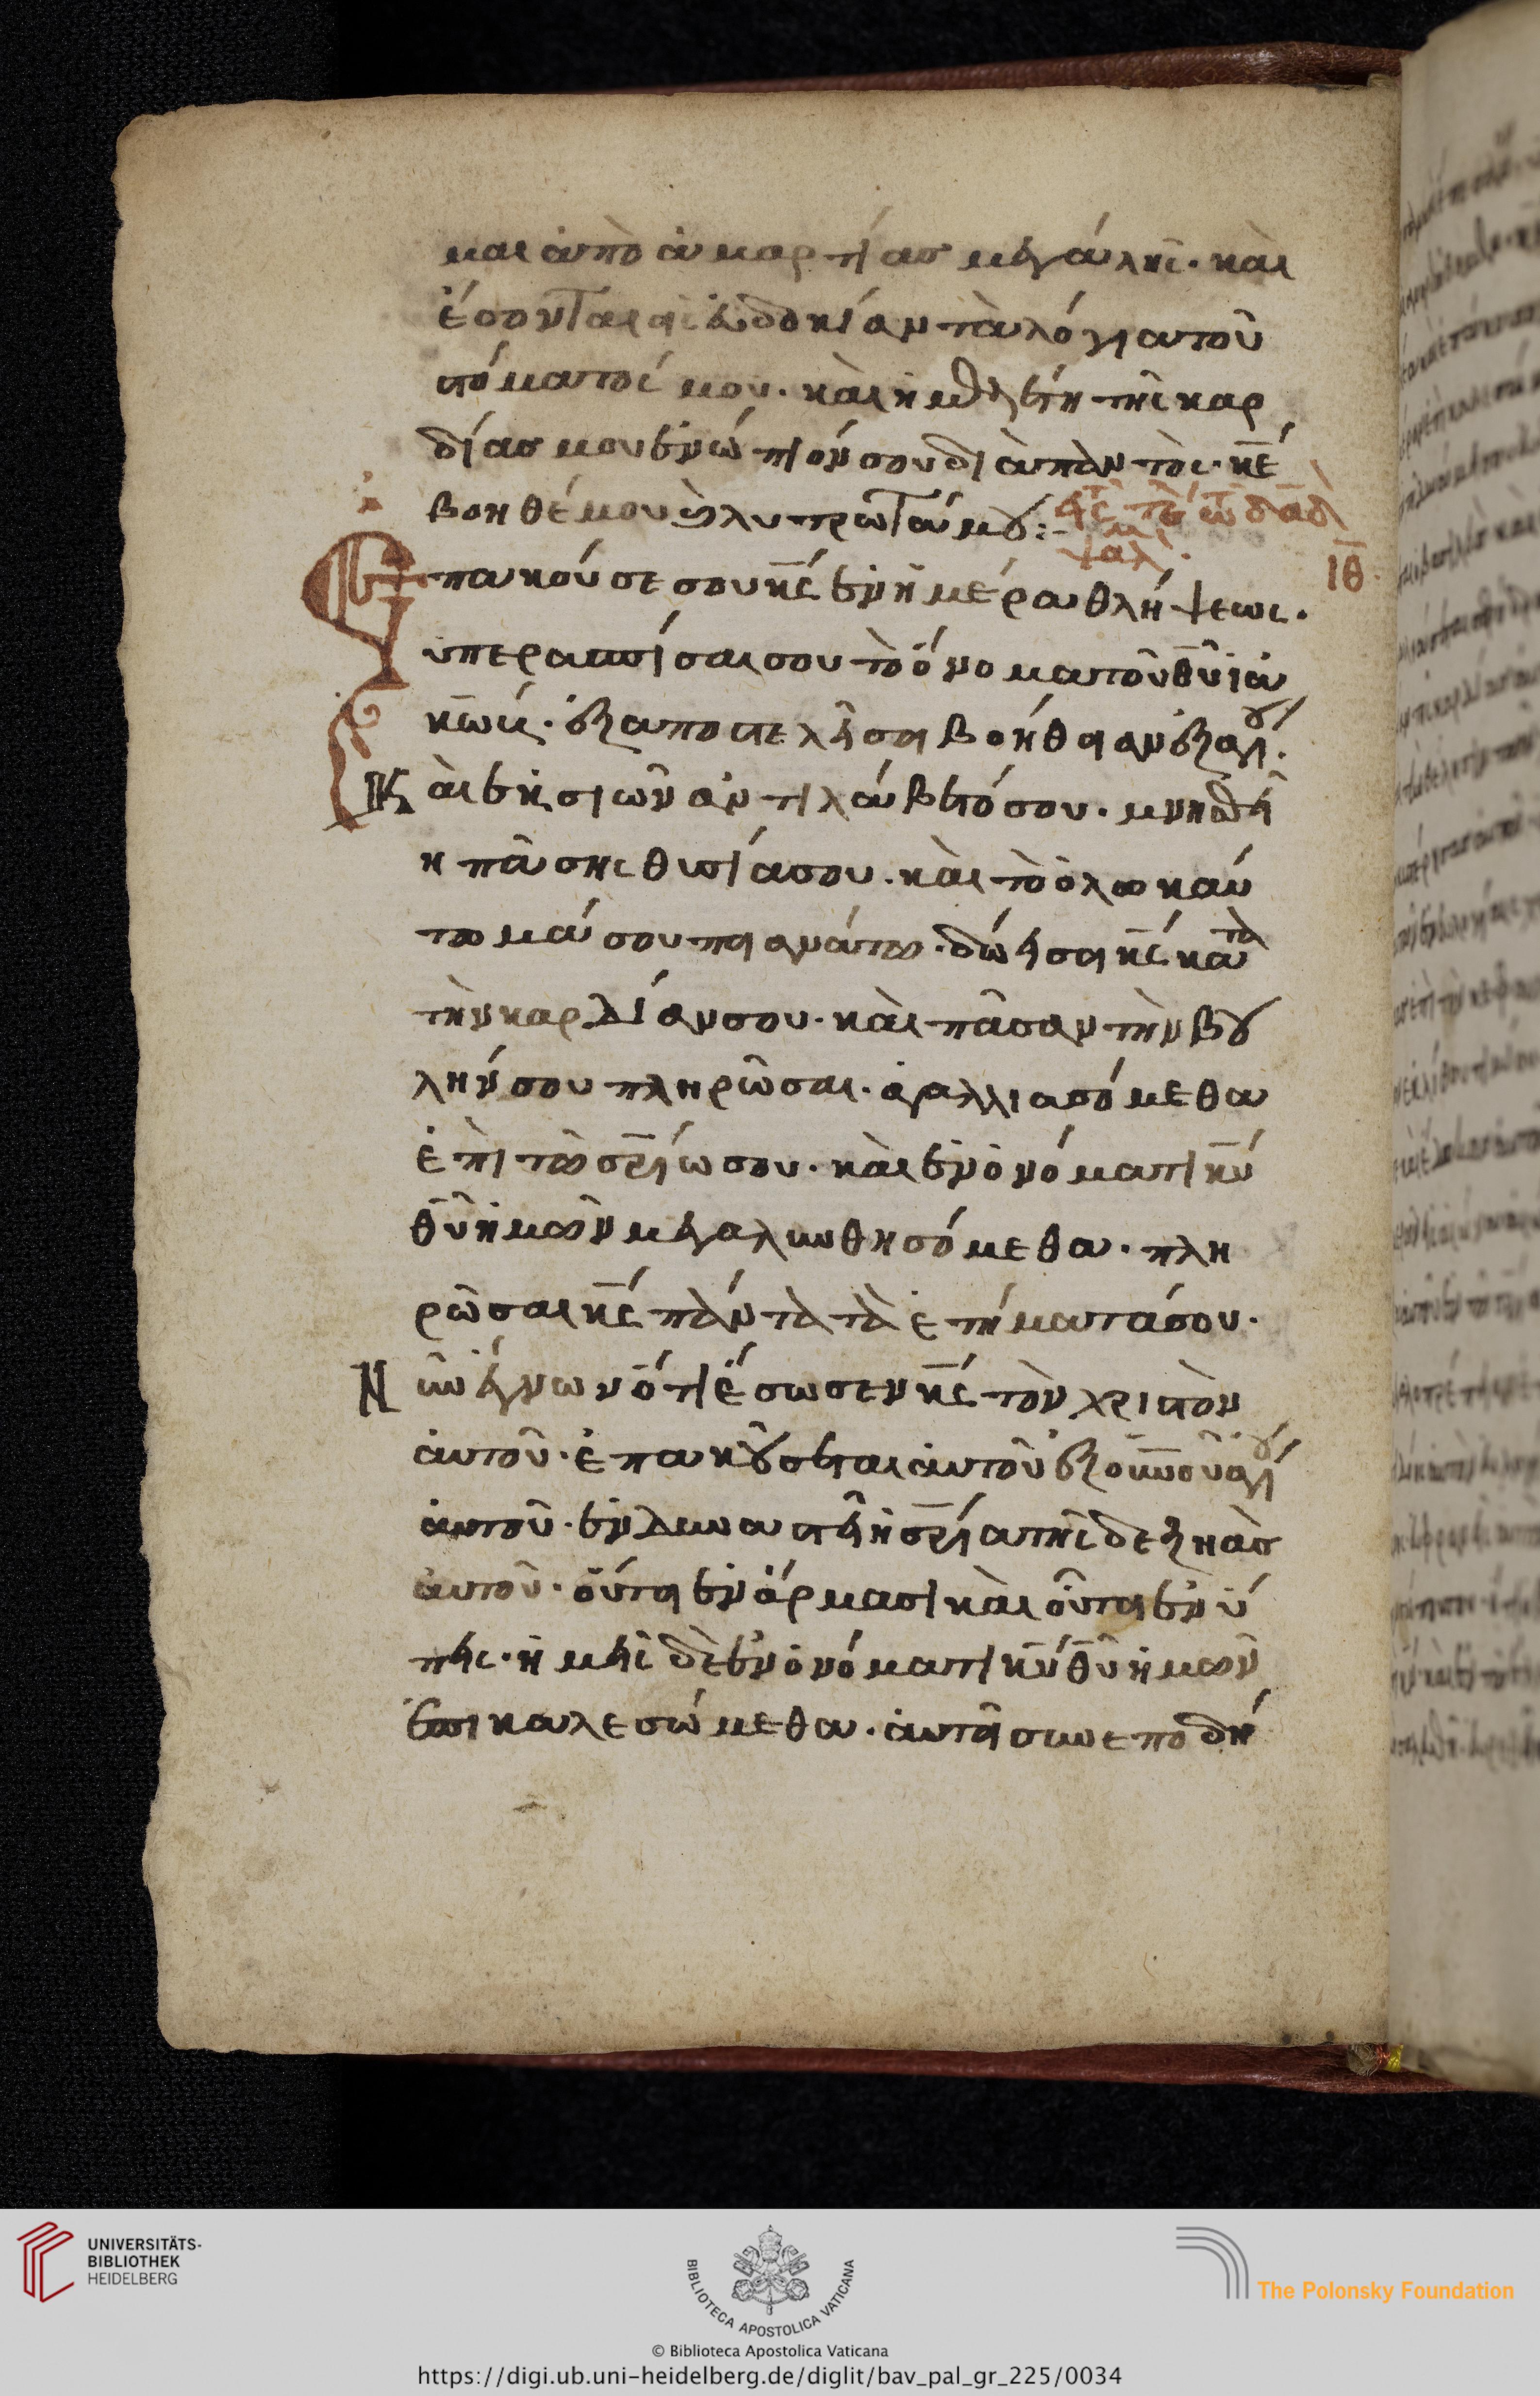 μαι ἀπὸ ἁμαρτίας μεγάλης. καὶ
ἔσονται εἰς εὐδοκίαν τὰ λόγια τοῦ
στόματός μου. καὶ ἡ μελέτη τῆς καρ
δίας μου ἐνώπιόν σου διὰ παντὸς. κ̅ε̅
βοηθέ μου καὶ λυτρωτά μου:-
ψαλ
ΙΘ
Επακούσε σου κ̅ς̅ ἐν ἡμέρα θλήψεως.
ὑπερασπίσαι σου τὸ ὄνομα τοῦ θ̅υ̅ ἰα
κωβ. ἐξαποστελεῖ σοι βοήθειαν ἐξ αγίου.
Καὶ ἐκ σιῶν ἀντιλάβετό σου. μνησθεί
η πάσης θυσίας σου. καὶ τὸ ὁλοκαύ
τομά σου πιανάτω. δώει σοι κ̅ς̅ κατὰ
τὴν καρδίαν σου. καὶ πᾶσαν τὴν βου
λήν σου πληρῶσαι. ἀγαλλιασόμεθα
ἐπὶ τῶ σ̅ρ̅ί̅ω σου. καὶ ἐν ὀνόματι κ̅υ̅
θ̅υ̅ ἡμῶν μεγαλυνθησόμεθα. πλη
ρῶσαι κ̅ς̅ πάντα τὰ ἐτήματά σου.
Νῦν ἔγνων ὅτι ἔσωσεν κ̅ς̅ τὸν χριστὸν
αὐτοῦ. ἐπακούσεται αὐτοῦ ἐξ ο̅υ̅ν̅ο̅ῦ̅ αγίου
αὐτοῦ. ἐν δυναστεί ἡ σ̅ρ̅ί̅α τῆς δεξηὰς
αὐτοῦ. οὗτοι ἐν ἅρμασι καὶ οὗτοι ἐν ἵ
πποις. ἡμεῖς δὲ ἐν ὀνόματι κ̅υ̅ θ̅υ̅ ἡμῶν
ἐπικαλεσώμεθα. αὐτοὶ συνεποδή
UNIVERSITÄTS-
BIBLIOTHEK
HEIDELBERG
BIBLIOTECA APOSTOLICA VATICANA
The Polonsky Foundation
© Biblioteca Apostolica Vaticana
https://digi.ub.uni-heidelberg.de/diglit/bav_pal_gr_225/0034